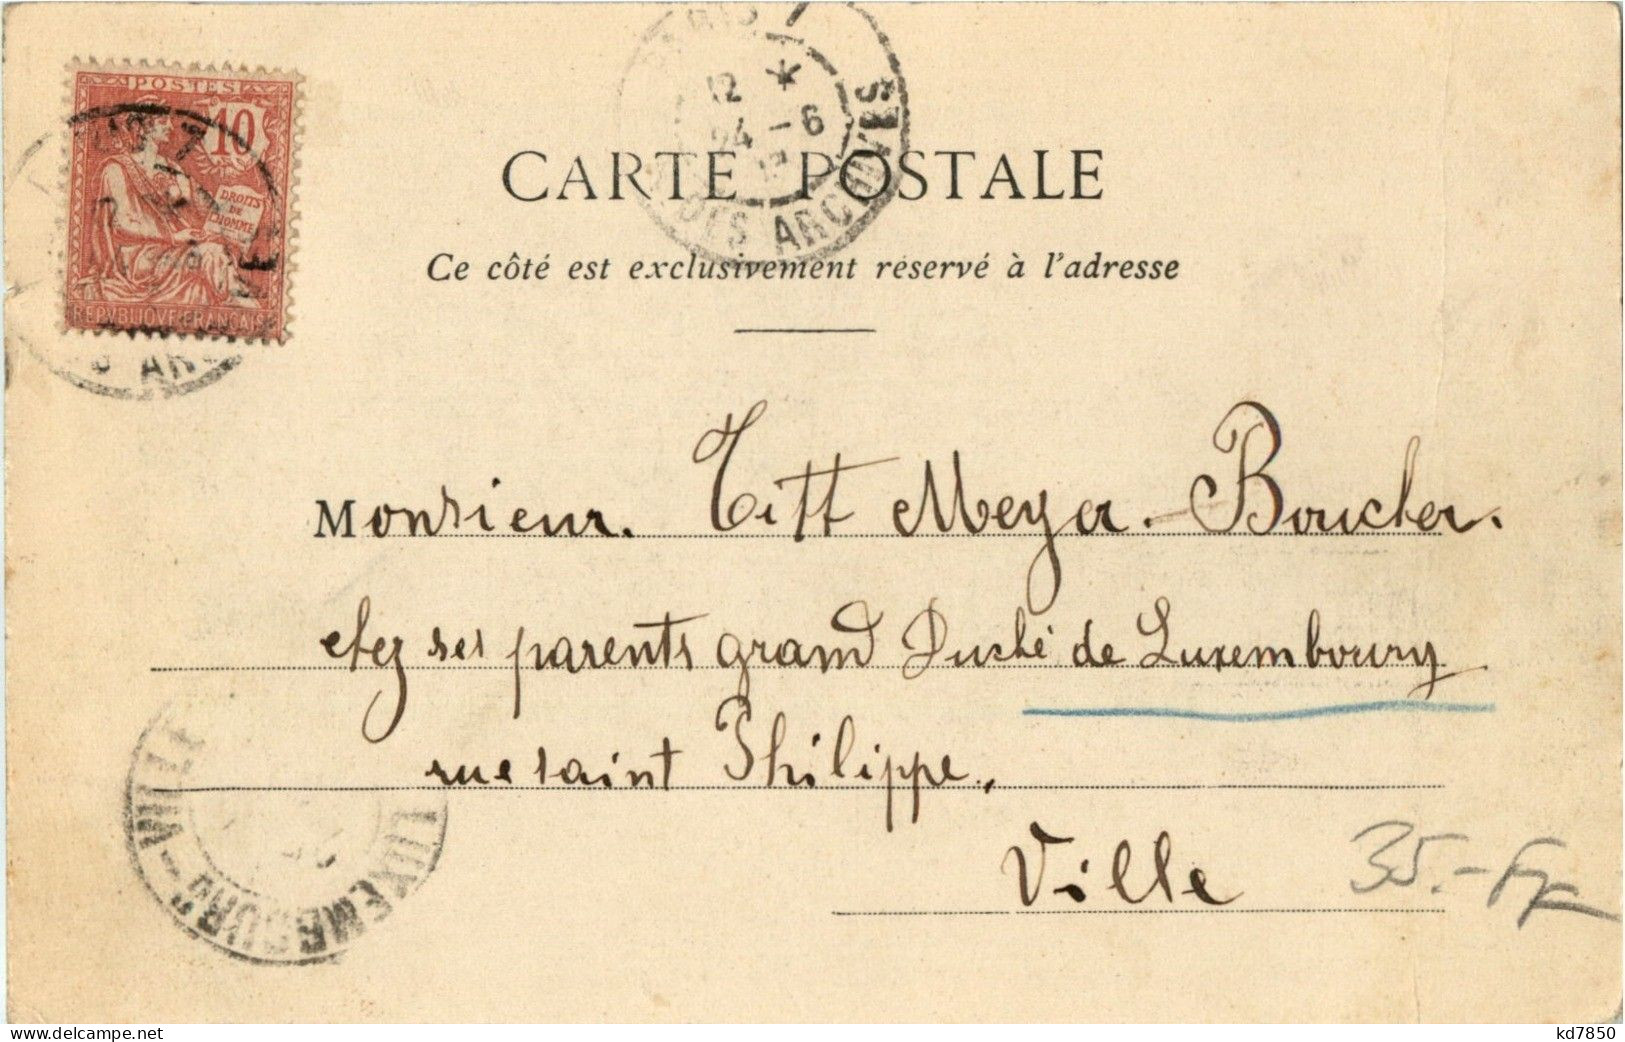 POSTES
10
DROITS
DE
L'HOMME
REPVBLIQVE FRANÇAISE
12 *
24 - 6
DES ARCHIVES
CARTE POSTALE
Ce côté est exclusivement réservé à l'adresse
Monsieur. Titt Meyer-Boucher.
chez ses parents grand Duché de Luxembourg
rue saint Philippe,
Ville
35.-Fr
LUXEMBOURG-VILLE
www.delcampe.net
kd7850